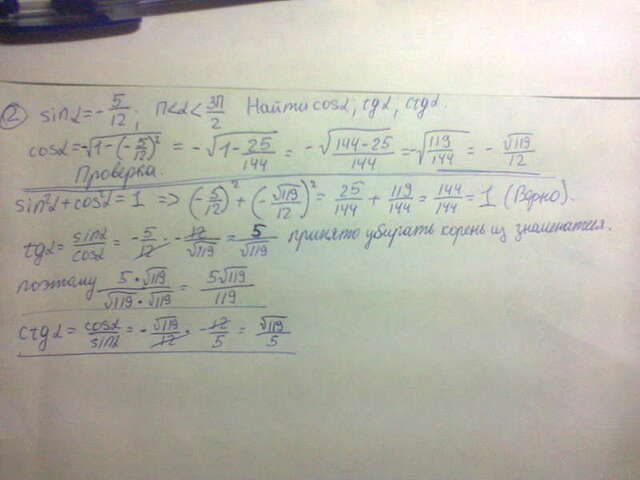 ② sinα = -5/12, π<α<3π/2 Найти cosα, tgα, ctgα.
cosα = -√(1-(-5/12)²) = -√(1-25/144) = -√((144-25)/144) = -√(119/144) = -√119/12
Проверка.
sin²α+cos²α = 1 => (-5/12)² + (-√119/12)² = 25/144 + 119/144 = 144/144 = 1 (Верно).
tgα = sinα/cosα = -5/12 · -12/√119 = 5/√119 принято убирать корень из знаменателя.
поэтому 5·√119/√119·√119 = 5√119/119
ctgα = cosα/sinα = -√119/12 · -12/5 = √119/5